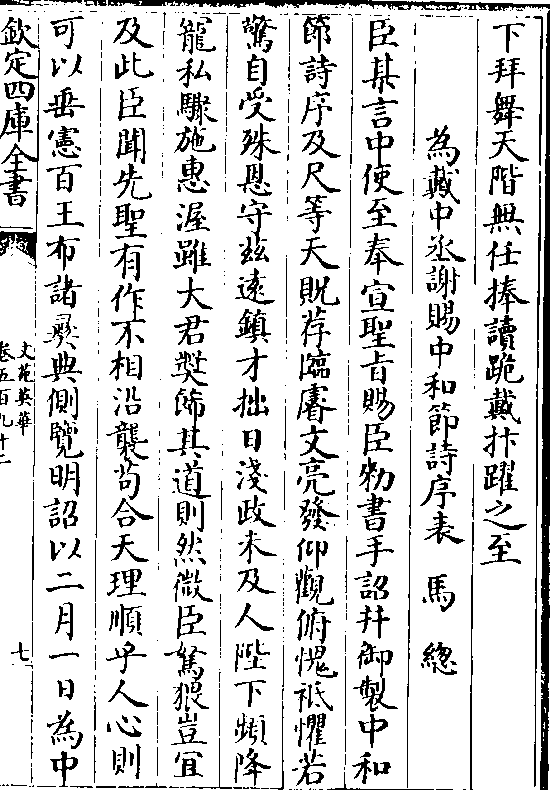 下拜舞天階無任捧讀跪戴抃躍之至
為戴中丞謝賜中和節詩序表 馬總
臣某言中使至奉宣聖旨賜臣勑書手詔并御製中和
節詩序及尺等天貺荐臨睿文亮發仰觀俯愧祗懼若
驚自受殊恩守兹遠鎮才拙日淺政未及人陛下頻降
寵私驟施惠渥雖大君奬飾其道則然微臣駑猥豈宜
及此臣聞先聖有作不相沿襲苟合天理順乎人心則
可以垂憲百王布諸彛典側覽明詔以二月一日為中
欽定四庫全書
文苑英華
卷五百九十二
七